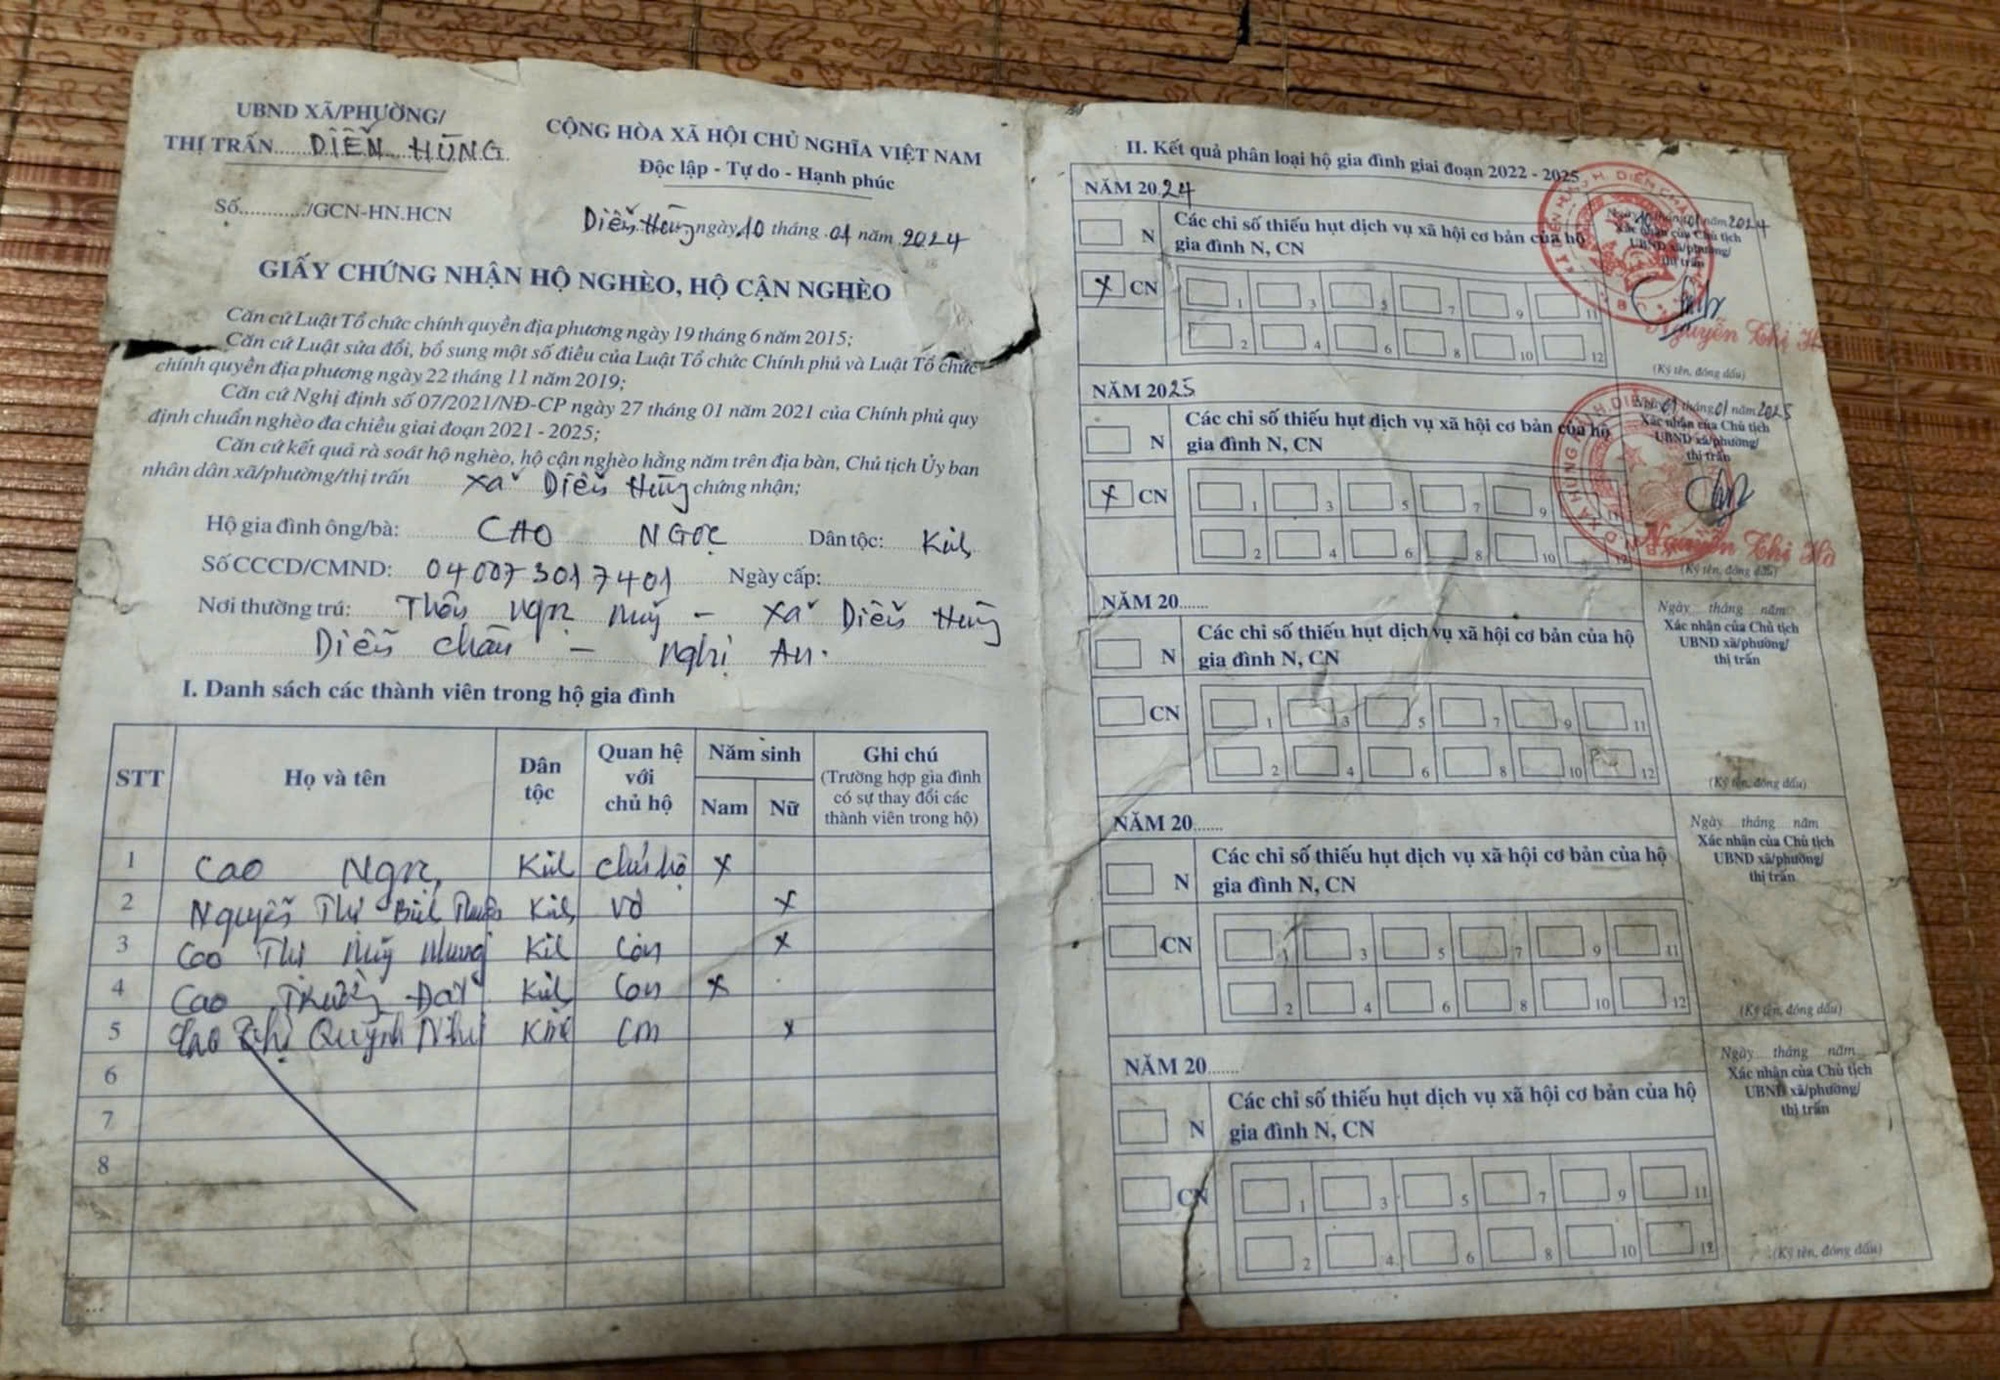 UBND XÃ/PHƯỜNG/
THỊ TRẤN.....DIỄN HÙNG
Số............/GCN-HN.HCN
CỘNG HÒA XÃ HỘI CHỦ NGHĨA VIỆT NAM
Độc lập - Tự do - Hạnh phúc
Diễn Hùng ngày 10 tháng 01 năm 2024
GIẤY CHỨNG NHẬN HỘ NGHÈO, HỘ CẬN NGHÈO
Căn cứ Luật Tổ chức chính quyền địa phương ngày 19 tháng 6 năm 2015;
Căn cứ Luật sửa đổi, bổ sung một số điều của Luật Tổ chức Chính phủ và Luật Tổ chức
chính quyền địa phương ngày 22 tháng 11 năm 2019;
Căn cứ Nghị định số 07/2021/NĐ-CP ngày 27 tháng 01 năm 2021 của Chính phủ quy
định chuẩn nghèo đa chiều giai đoạn 2021 - 2025;
Căn cứ kết quả rà soát hộ nghèo, hộ cận nghèo hằng năm trên địa bàn, Chủ tịch Ủy ban
nhân dân xã/phường/thị trấn xã Diễn Hùng chứng nhận;
Hộ gia đình ông/bà: CAO NGỌC Dân tộc: Kinh
Số CCCD/CMND: 040073017401 Ngày cấp:
Nơi thường trú: Thôn Ngọc Mỹ - xã Diễn Hùng
Diễn Châu - Nghị An.
I. Danh sách các thành viên trong hộ gia đình
STT Họ và tên Dân tộc Quan hệ với chủ hộ Năm sinh Nam Nữ Ghi chú (Trường hợp gia đình có sự thay đổi các thành viên trong hộ)
1 Cao Ngọc Kinh Chủ hộ x
2 Nguyễn Thị Bích Kinh Vợ x
3 Cao Thị Mỹ Nhung Kinh Con x
4 Cao Trường Đạt Kinh Con x
5 Cao Thị Quỳnh Như Kinh Con x
6
7
8
...
II. Kết quả phân loại hộ gia đình giai đoạn 2022 - 2025
NĂM 2024
N
Các chỉ số thiếu hụt dịch vụ xã hội cơ bản của hộ
gia đình N, CN
x CN
1 3 5 7 9 11
2 4 6 8 10 12
Ngày 10 tháng 01 năm 2024
Xác nhận của Chủ tịch
UBND xã/phường/
thị trấn
Nguyễn Thị H
(Ký tên, đóng dấu)
NĂM 2025
N
Các chỉ số thiếu hụt dịch vụ xã hội cơ bản của hộ
gia đình N, CN
x CN
1 3 5 7 9
2 4 6 8 10 12
Ngày 01 tháng 01 năm 2025
Xác nhận của Chủ tịch
UBND xã/phường/
thị trấn
Nguyễn Thị Hà
(Ký tên, đóng dấu)
NĂM 20.......
N
Các chỉ số thiếu hụt dịch vụ xã hội cơ bản của hộ
gia đình N, CN
CN
1 3 5 7 9 11
2 4 6 8 10 12
Ngày tháng năm
Xác nhận của Chủ tịch
UBND xã/phường/
thị trấn
(Ký tên, đóng dấu)
NĂM 20.......
N
Các chỉ số thiếu hụt dịch vụ xã hội cơ bản của hộ
gia đình N, CN
CN
1 3 5 7 9 11
2 4 6 8 10 12
Ngày tháng năm
Xác nhận của Chủ tịch
UBND xã/phường/
thị trấn
(Ký tên, đóng dấu)
NĂM 20.......
N
Các chỉ số thiếu hụt dịch vụ xã hội cơ bản của hộ
gia đình N, CN
CN
1 3 5 7 9 11
2 4 6 8 10 12
Ngày tháng năm
Xác nhận của Chủ tịch
UBND xã/phường/
thị trấn
(Ký tên, đóng dấu)